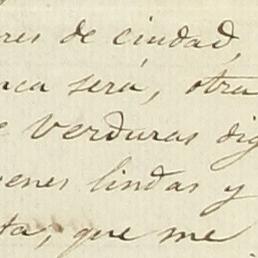 res de ciudad,
nca será, otra
e verduras dig
venes lindas y
ta, que me